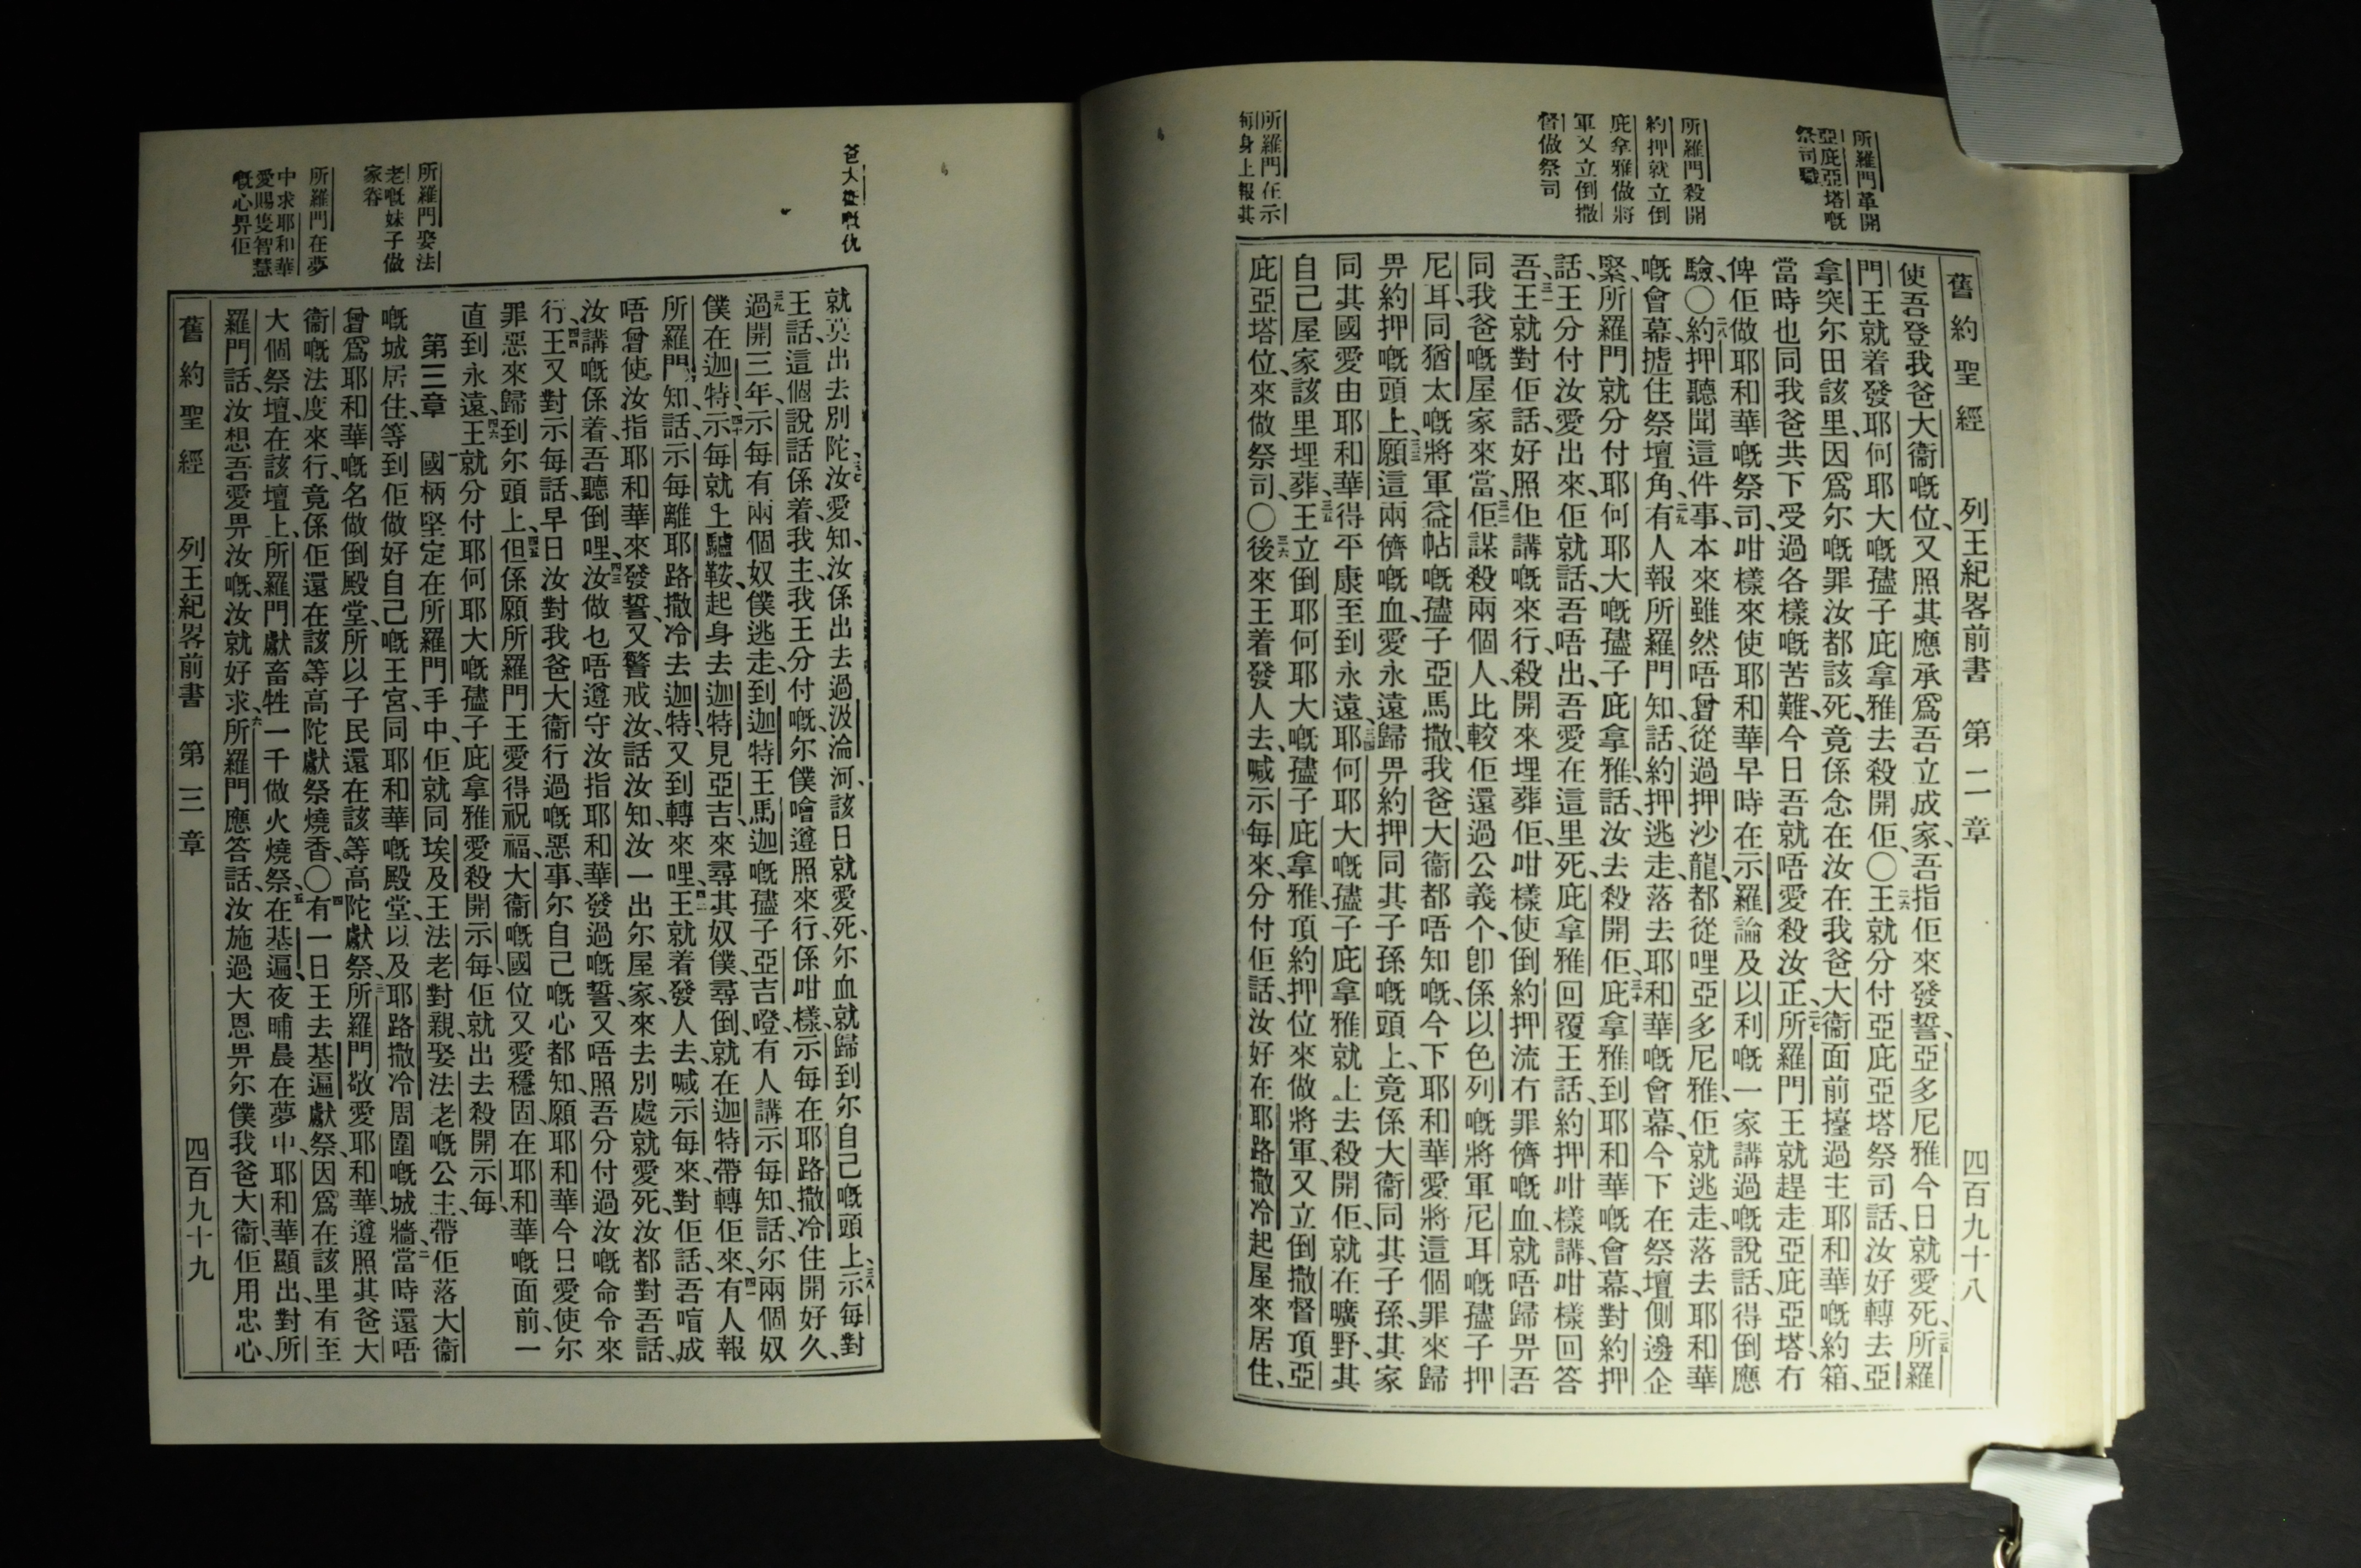 舊約聖經 列王紀畧前書 第二章 四百九十八
所羅門革開
亞庇亞塔嘅
祭司職
所羅門殺開
約押就立倒
庇拿雅做將
軍又立倒撒
督做祭司
所羅門在示
每身上報其
使吾登我爸大衞嘅位、又照其應承爲吾立成家、吾指佢來發誓、亞多尼雅今日就愛死、二五所羅
門王就着發耶何耶大嘅孻子庇拿雅去殺開佢、〇二六王就分付亞庇亞塔祭司話、汝好轉去亞
拿突尔田該里、因爲尔嘅罪汝都該死、竟係念在汝在我爸大衞面前擡過主耶和華嘅約箱、
當時也同我爸共下受過各樣嘅苦難、今日吾就唔愛殺汝正、二七所羅門王就趕走亞庇亞塔冇
俾佢做耶和華嘅祭司、咁樣來使耶和華早時在示羅論及以利嘅一家講過嘅說話、得倒應
驗、〇二八約押聽聞這件事、本來雖然唔曾從過押沙龍、都從哩亞多尼雅、佢就逃走、落去耶和華
嘅會幕、摅住祭壇角、二九有人報所羅門知、話、約押逃走落去耶和華嘅會幕、今下在祭壇側邊企
緊、所羅門就分付耶何耶大嘅孻子庇拿雅、話、汝去殺開佢、三十庇拿雅到耶和華嘅會幕、對約押
話、王分付汝愛出來、佢就話、吾唔出、吾愛在這里死、庇拿雅回覆王話、約押咁樣講、咁樣回答
吾、三一王就對佢話、好照佢講嘅來行、殺開來埋葬佢、咁樣使倒約押流冇罪儕嘅血、就唔歸畀吾
同我爸嘅屋家來當、三二佢謀殺兩個人、比較佢還過公義个、卽係以色列嘅將軍尼耳嘅孻子押
尼耳、同猶太嘅將軍益帖嘅孻子亞馬撒、我爸大衞都唔知嘅、今下耶和華愛將這個罪來歸
畀約押嘅頭上、三三願這兩儕嘅血、愛永遠歸畀約押同其子孫嘅頭上、竟係大衞同其子孫、其家
同其國愛由耶和華得平康至到永遠、三四耶何耶大嘅孻子庇拿雅就上去殺開佢、就在曠野、其
自己屋家該里埋葬、三五王立倒耶何耶大嘅孻子庇拿雅、頂約押位來做將軍、又立倒撒督頂亞
庇亞塔位、來做祭司、〇三六後來王着發人去、喊示每來、分付佢話、汝好在耶路撒冷起屋來居住、
爸大衞嘅仇
所羅門娶法
老嘅妹子做
家眷
所羅門在夢
中求耶和華
愛賜隻智慧
嘅心畀佢
就莫出去別陀、三七汝愛知、汝係出去過汲淪河、該日就愛死、尔血就歸到尔自己嘅頭上、三八示每對
王話、這個說話係着、我主、我王分付嘅、尔僕噲遵照來行、係咁樣、示每在耶路撒冷住開好久、
三九過開三年、示每有兩個奴僕逃走、到迦特王馬迦嘅孻子亞吉嶝、有人講示每知、話、尔兩個奴
僕在迦特、四十示每就上驢鞍、起身去迦特見亞吉、來尋其奴僕、尋倒、就在迦特帶轉佢來、四一有人報
所羅門知、話、示每離耶路撒冷去迦特、又到轉來哩、四二王就着發人去、喊示每來、對佢話、吾唷成
唔曾使汝指耶和華來發誓、又警戒汝、話汝知、汝一出尔屋家、來去別處就愛死、汝都對吾話、
汝講嘅係着、吾聽倒哩、四三汝做乜唔遵守汝指耶和華發過嘅誓、又唔照吾分付過汝嘅命令來
行、四四王又對示每話、早日汝對我爸大衞行過嘅惡事、尔自己嘅心都知、願耶和華今日愛使尔
罪惡來歸到尔頭上、四五但係願所羅門王愛得祝福、大衞嘅國位又愛穩固在耶和華嘅面前、一
直到永遠、四六王就分付耶何耶大嘅孻子庇拿雅愛殺開示每、佢就出去殺開示每、
第三章 一國柄堅定在所羅門手中、佢就同埃及王法老對親、娶法老嘅公主、帶佢落大衞
嘅城居住、等到佢做好自己嘅王宮、同耶和華嘅殿堂、以及耶路撒冷周圍嘅城牆、二當時還唔
曾爲耶和華嘅名做倒殿堂、所以子民還在該等高陀獻祭、三所羅門敬愛耶和華、遵照其爸大
衞嘅法度來行、竟係佢還在該等高陀獻祭燒香、〇四有一日王去基遍獻祭、因爲在該里有至
大個祭壇、在該壇上、所羅門獻畜牲一千做火燒祭、五在基遍、夜晡晨在夢中、耶和華顯出、對所
羅門話、汝想吾愛畀汝嘅、汝就好求、六所羅門應答話、汝施過大恩畀尔僕我爸大衞、佢用忠心、
舊約聖經 列王紀畧前書 第三章 四百九十九